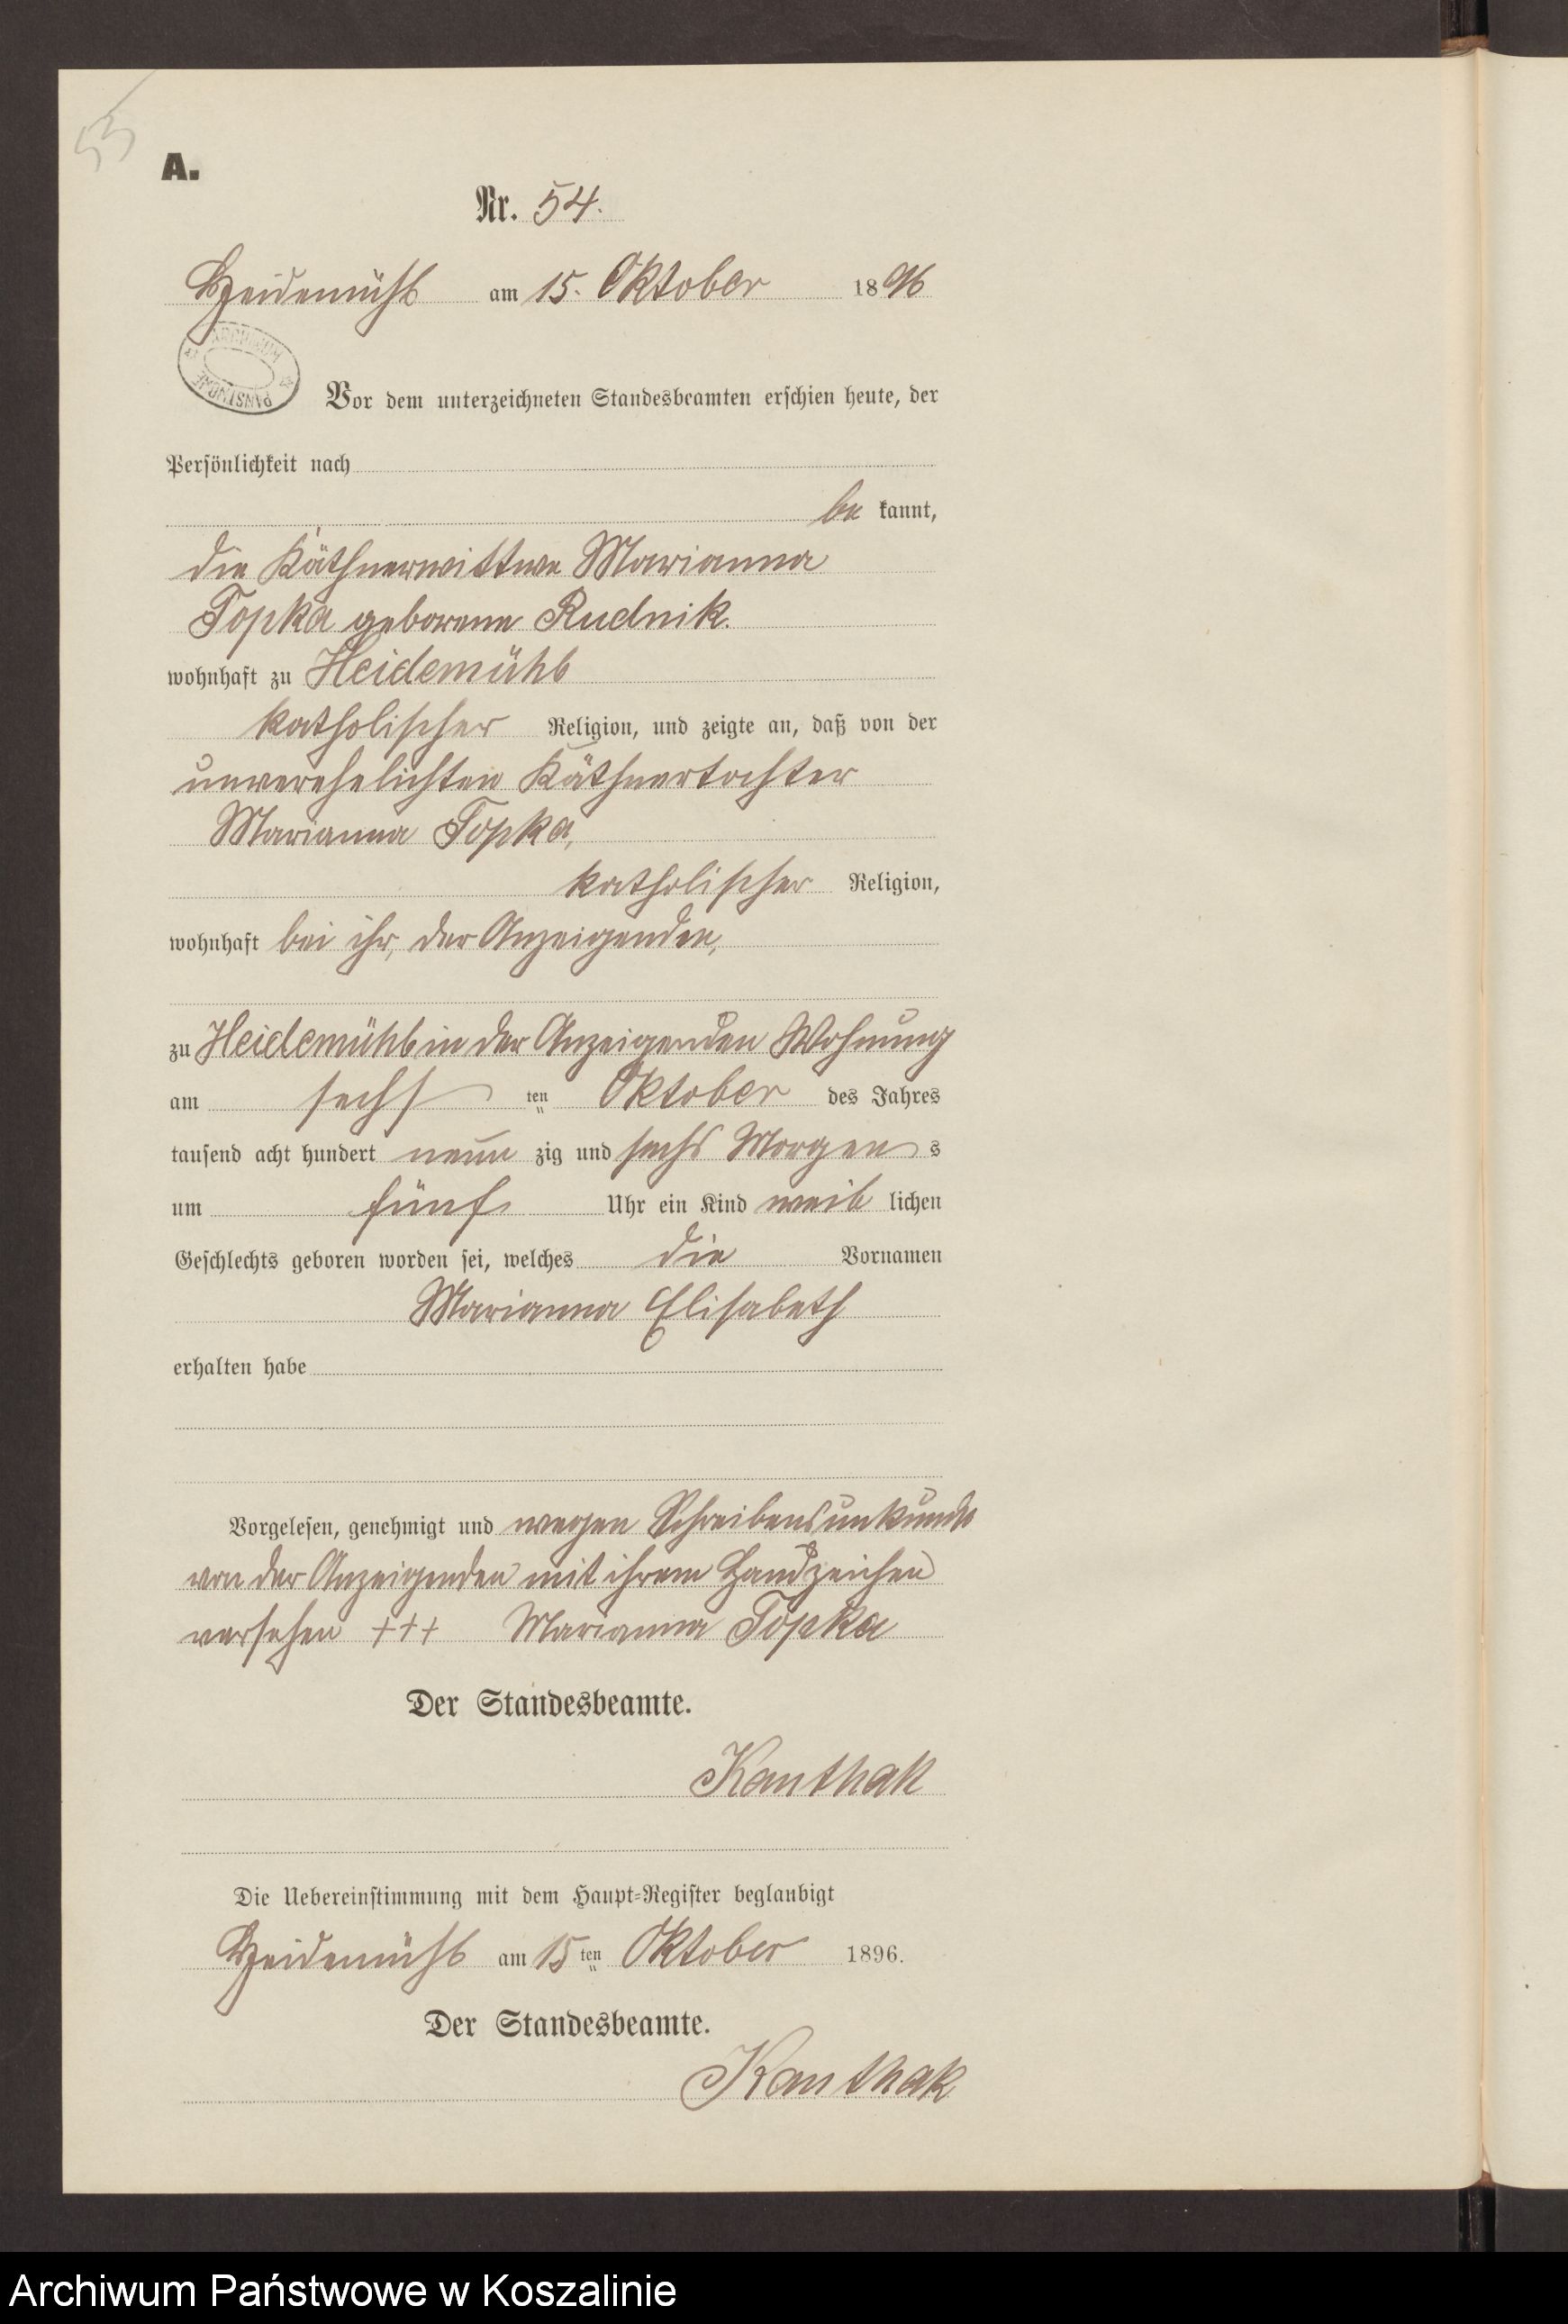 53
A.
Nr. 54.
Heidemühl am 15. Oktober 1896
ARCHIWUM PAŃSTWOWE
Vor dem unterzeichneten Standesbeamten erschien heute, der
Persönlichkeit nach
be kannt,
die Käthnerwittwe Marianna
Topka geborene Rudnik.
wohnhaft zu Heidemühl
katholischer Religion, und zeigte an, daß von der
unverehelichten Käthnertochter
Marianna Topka,
katholischer Religion,
wohnhaft bei ihr, der Anzeigenden,
zu Heidemühl in der Anzeigenden Wohnung
am sechs ten Oktober des Jahres
tausend acht hundert neun zig und sechs Morgen s
um fünf Uhr ein Kind weib lichen
Geschlechts geboren worden sei, welches die Vornamen
Marianna Elisabeth
erhalten habe
Vorgelesen, genehmigt und wegen Schreibensunkunde
von der Anzeigenden mit ihrem Handzeichen
versehen +++ Marianna Topka
Der Standesbeamte.
Kanthak
Die Uebereinstimmung mit dem Haupt-Register beglaubigt
Heidemühl am 15 ten Oktober 1896.
Der Standesbeamte.
Kanthak
Archiwum Państwowe w Koszalinie